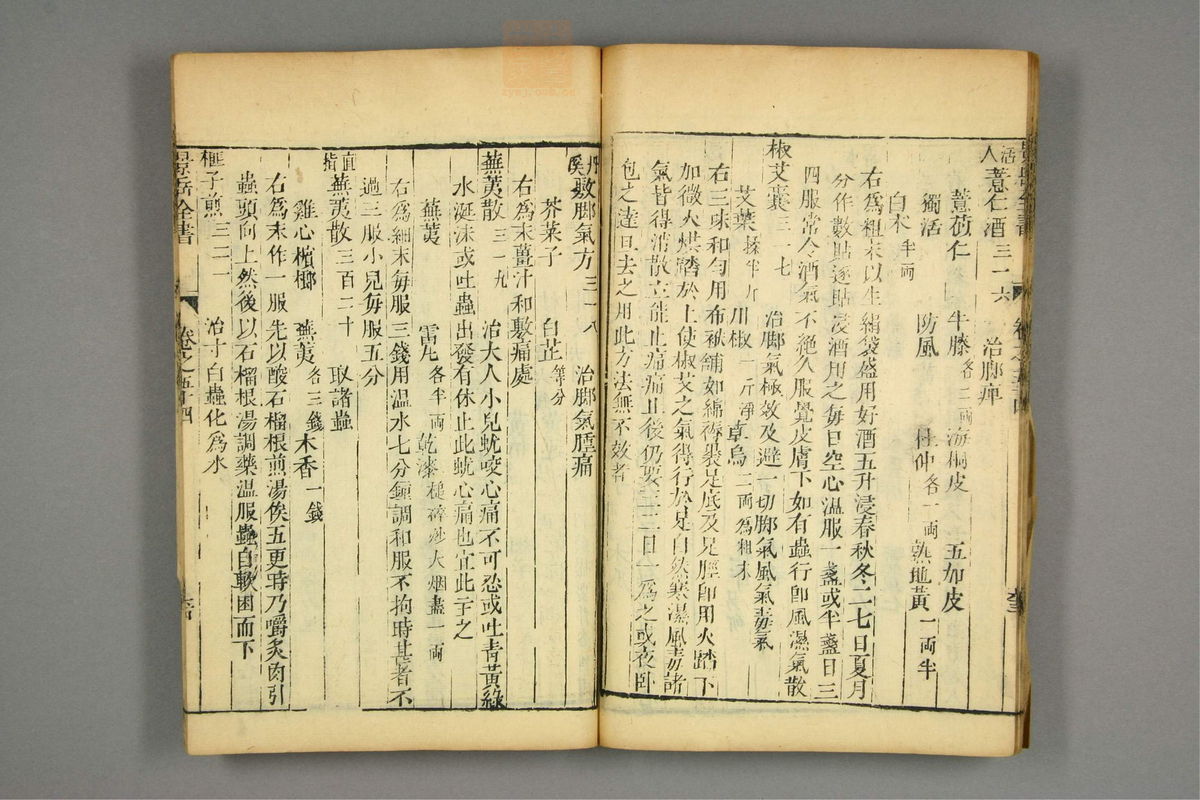 景岳全書 卷之五十四 至
活人薏仁酒三一六 治脚痺
薏苡仁 牛膝各二兩 海桐皮 五加皮
獨活 防風 杜仲各一兩 熟地黃一兩半
白术半兩
右為粗末以生絹袋盛用好酒五升浸春秋冬二七日夏月
分作數貼逐貼浸酒用之每日空心溫服一盞或半盞日三
四服常令酒氣不絕久服覺皮膚下如有蟲行即風濕氣散
椒艾囊三一七 治脚氣極效及避一切脚氣風氣毒氣
艾葉揉半斤 川椒一斤淨 草烏二兩為粗末
右三味和勻用布袱舖如綿褥裝足底及足脛即用火踏下
加微火烘踏於上使椒艾之氣得行於足自然寒濕風毒諸
氣皆得消散立能止痛痛止後仍要三二日一為之或夜臥
包之達旦去之用此方法無不效者
丹溪敷脚氣方三一八 治脚氣腫痛
芥菜子 白芷等分
右為末薑汁和敷痛處
蕪荑散三一九 治大人小兒蚘咬心痛不可忍或吐青黃綠
水涎沫或吐蟲出發有休止此蚘心痛也宜此主之
蕪荑 雷丸各半兩 乾漆槌碎炒大烟盡一兩
右為細末每服三錢用温水七分鐘調和服不拘時甚者不
過三服小兒每服五分
直指蕪荑散三百二十 取諸蟲
雞心檳榔 蕪荑各三錢 木香一錢
右為末作一服先以酸石榴根煎湯俟五更時乃嚼炙肉引
蟲頭向上然後以石榴根湯調藥温服蟲自軟困而下
榧子煎三二一 治寸白蟲化為水
景岳全書 卷之五十四